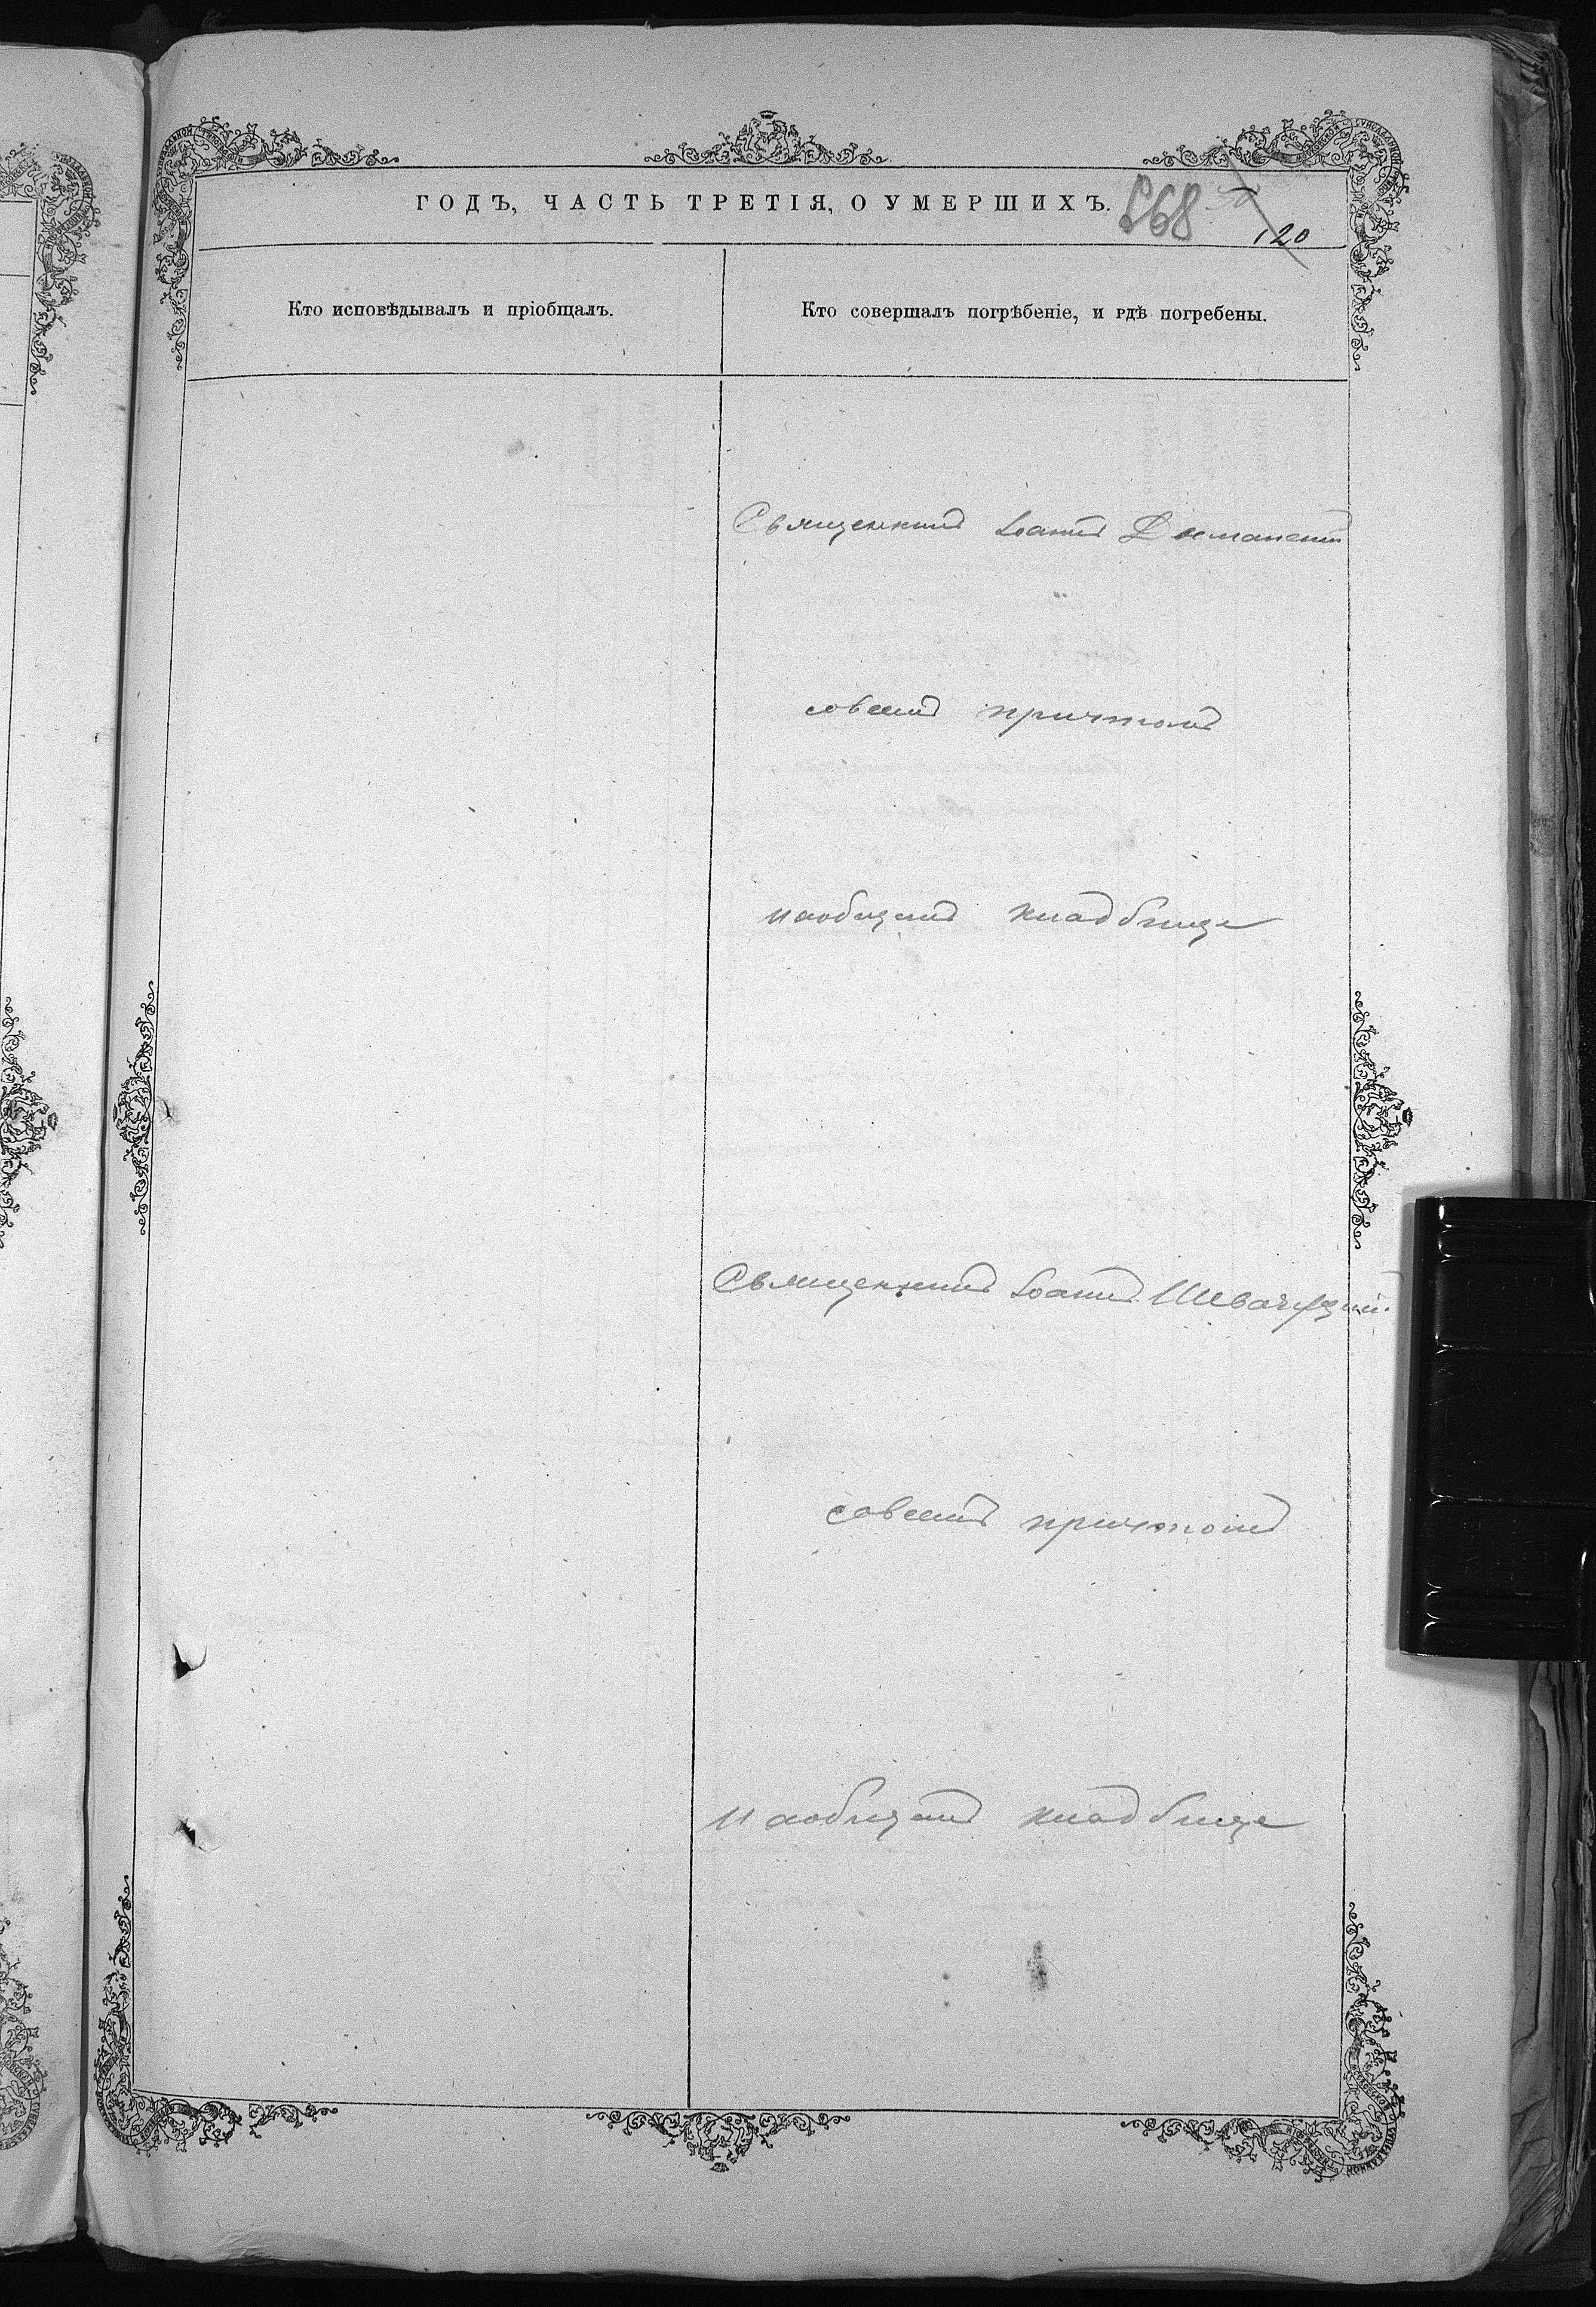 ГОДЪ, ЧАСТЬ ТРЕТІЯ, О УМЕРШИХЪ.
568
120
Кто исповѣдывалъ и пріобщалъ.
Кто совершалъ погрѣбеніе, и гдѣ погребены.
Священникъ Іоаннъ
совсемъ причтомъ
наобщемъ кладбище
Священникъ Іоаннъ
совсемъ причтомъ
наобщемъ кладбище